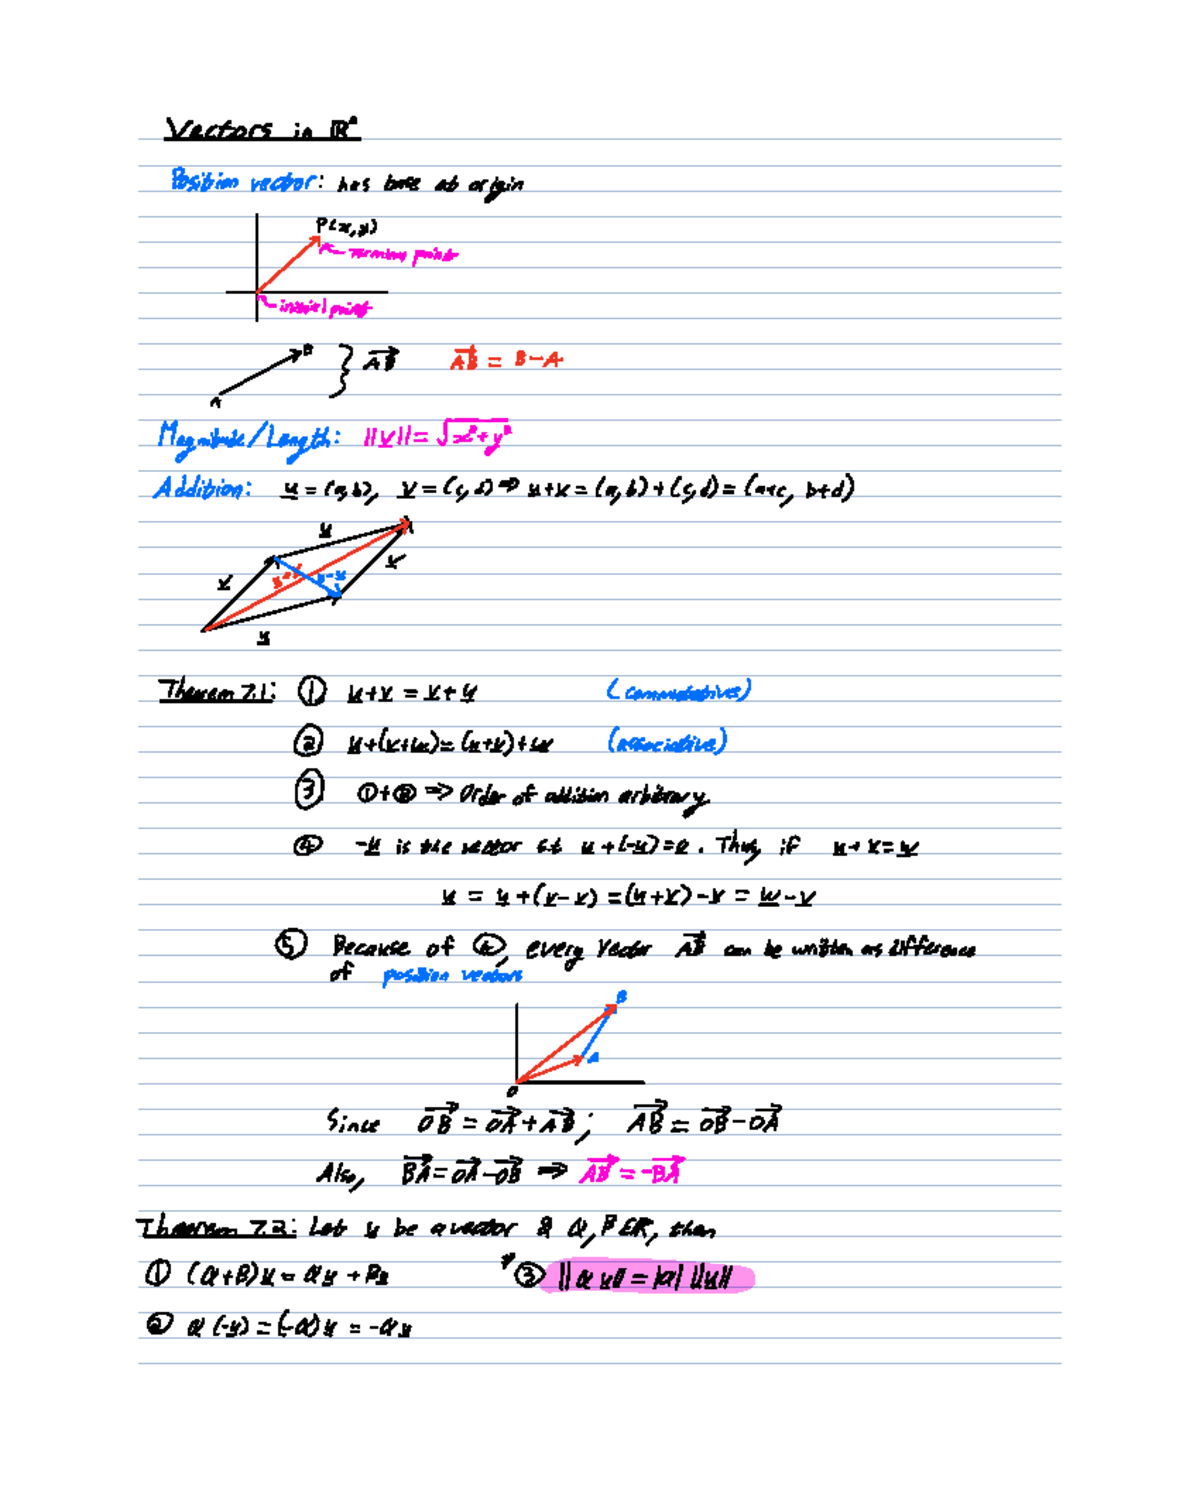 Vectors in ℝⁿ
Position vector: has base at origin
P(x,y)
terminal point
initial point
B
A
} AB⃗ AB⃗ = B-A
Magnitude/Length: ||v|| = √x²+y²
Addition: u = (a,b), v = (c,d) ⇒ u+v = (a,b)+(c,d) = (a+c, b+d)
u
v
v
u+v
u-v
u
Theorem 7.1: ① u+v = v+u (commutative)
② u+(v+w)=(u+v)+w (associative)
③ ①+② ⇒ Order of addition arbitrary.
④ -u is the vector st u+(-u)=0. Thus, if u+v=w
u = u+(v-v) = (u+v)-v = w-v
⑤ Because of ④, every vector AB⃗ can be written as difference
of position vectors
B
A
O
Since OB⃗ = OA⃗ + AB⃗; AB⃗ = OB⃗ - OA⃗
Also, BA⃗ = OA⃗ - OB⃗ ⇒ AB⃗ = -BA⃗
Theorem 7.2: Let u be a vector & α, β ∈ ℝ, then
① (α+β)u = αu + βu * ③ ||αu|| = |α| ||u||
② α(-u) = (-α)u = -αu